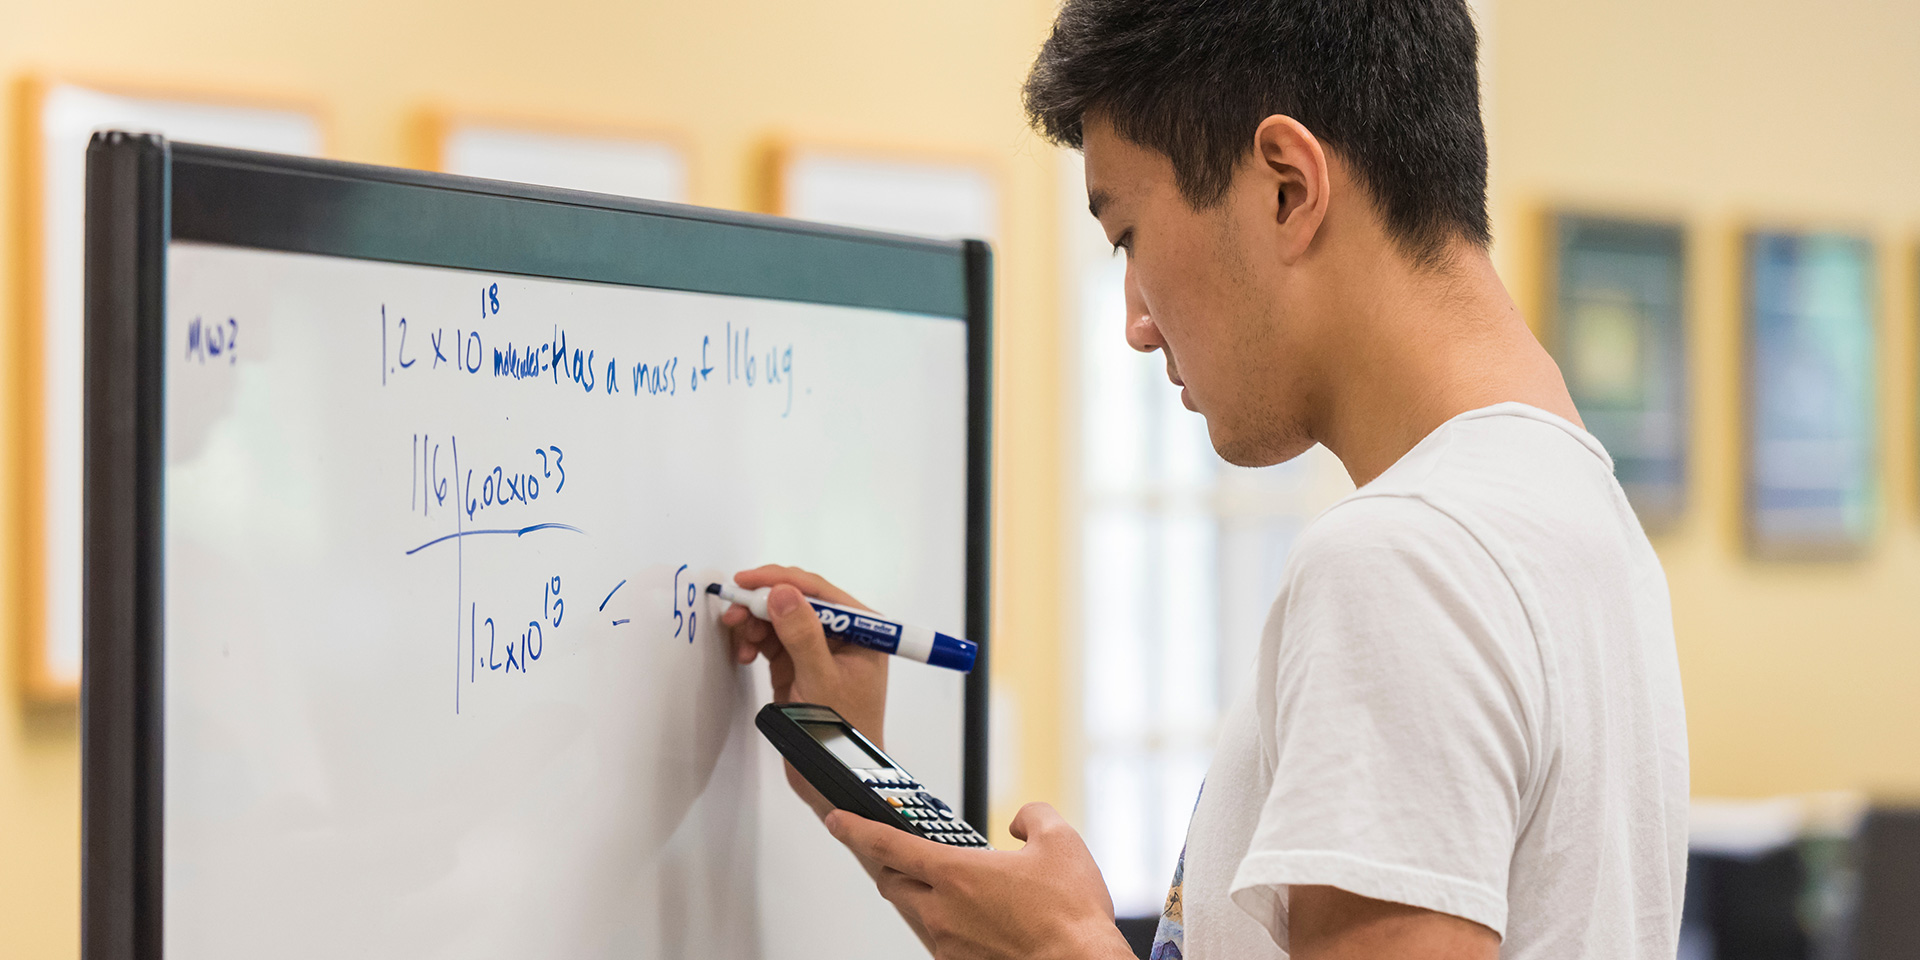 MW?
1.2 x 10^18 molecules = Has a mass of 116 ug.
116 | 6.02x10^23
1.2x10^18 = 58
EXPO
low odor